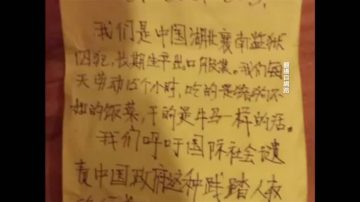 我们是中国湖北襄南监狱
囚犯,长期生产出口服装。我们每
天劳动15个小时,吃的是猪狗不
如的饭菜,干的是牛马一样的活。
我们呼吁国际社会谴
责中国政府这种践踏人权
翻攝自網路